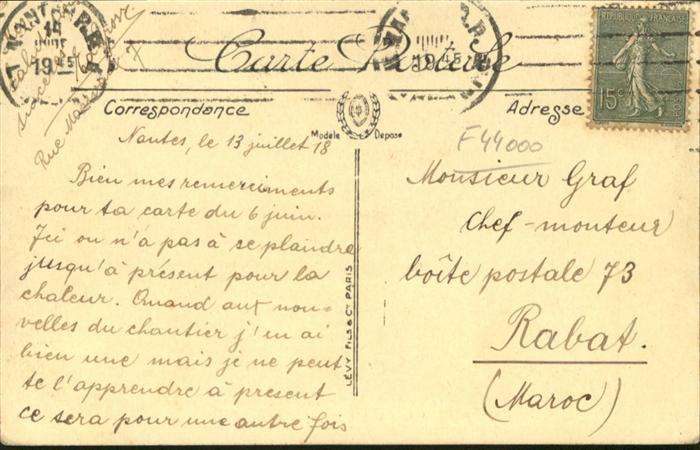 NANTES R.P.
14
1945
NANTES R.P.
1945
Carte Postale
RÉPUBLIQUE FRANÇAISE
15c
Correspondance
Adresse
Modèle Déposé
F44000
Nantes, le 13 juillet 18
Bien mes remerciments
pour ta carte du 6 juin.
Ici on n'a pas à se plandre
jusqu'à présent pour la
chaleur. Quand aut nou-
velles du chantier j'en ai
bien une mais je ne peut
te l'apprendre à présent
ce sera pour une autre fois
Rue
LÉVY FILS & Cie PARIS
Monsieur Graf
Chef-monteur
boîte postale 73
Rabat.
(Maroc)